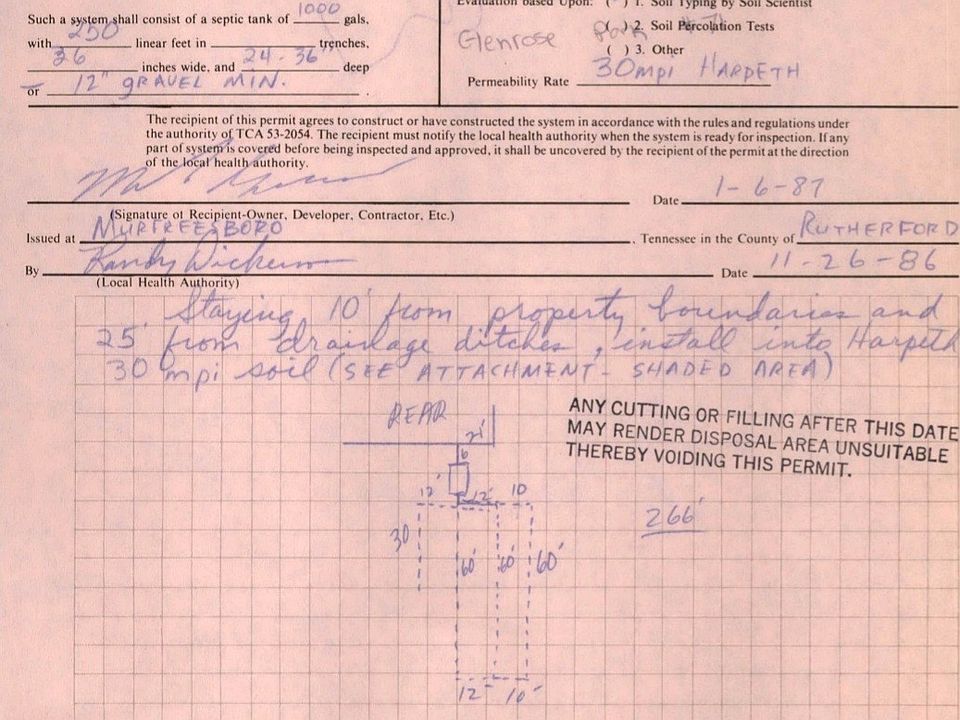 Such a system shall consist of a septic tank of 1000 gals,
with 250 linear feet in trenches,
36 inches wide, and 24-36" deep
or 12" GRAVEL MIN.
Evaluation Based Upon: ( ) 1. Soil Typing by Soil Scientist
( ) 2. Soil Percolation Tests
Glenrose Park
( ) 3. Other
Permeability Rate 30 mpi HARPETH
The recipient of this permit agrees to construct or have constructed the system in accordance with the rules and regulations under
the authority of TCA 53-2054. The recipient must notify the local health authority when the system is ready for inspection. If any
part of system is covered before being inspected and approved, it shall be uncovered by the recipient of the permit at the direction
of the local health authority.
Date 1-6-87
(Signature of Recipient-Owner, Developer, Contractor, Etc.)
Issued at MURFREESBORO, Tennessee in the County of RUTHERFORD
By Randy Dickerson Date 11-26-86
(Local Health Authority)
Staying 10' from property boundaries and
25' from drainage ditches, install into Harpeth
30 mpi soil (SEE ATTACHMENT - SHADED AREA)
REAR
ANY CUTTING OR FILLING AFTER THIS DATE
MAY RENDER DISPOSAL AREA UNSUITABLE
THEREBY VOIDING THIS PERMIT.
21'
6
12' 12' 10
266'
30 60' 60' 60'
12' 10'